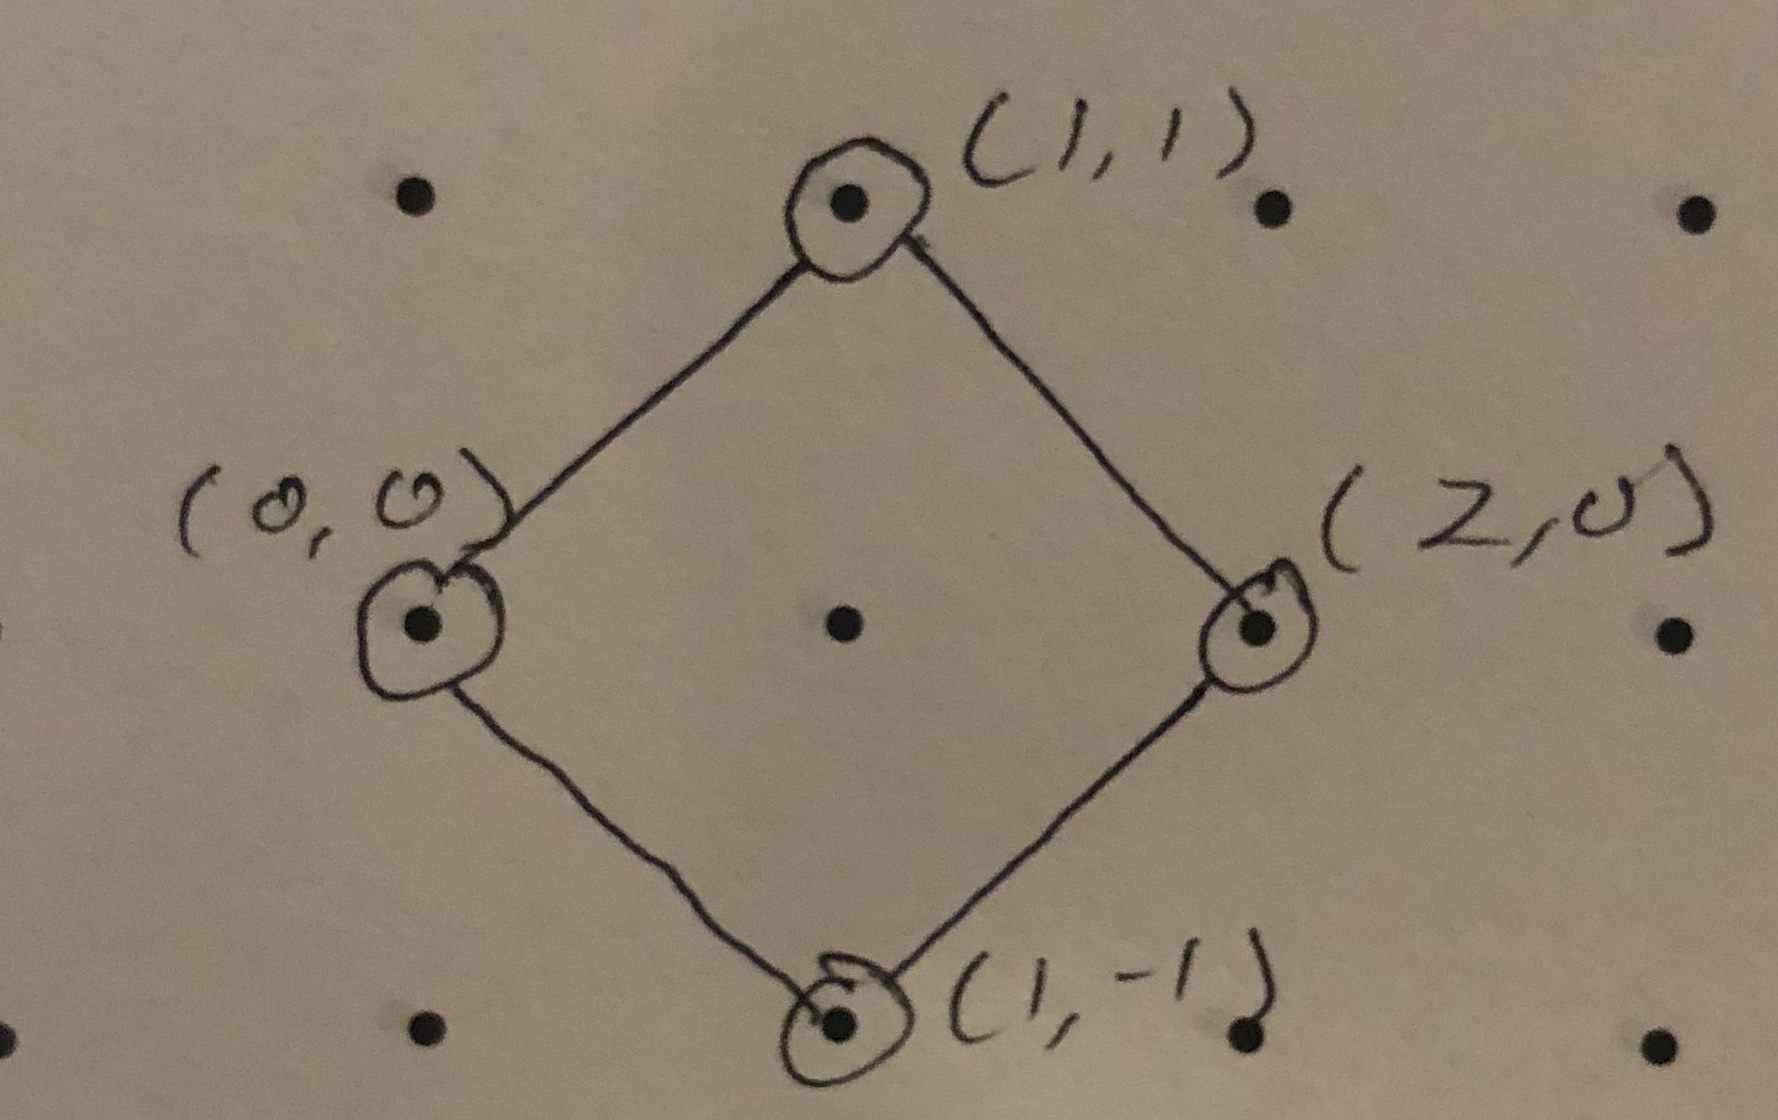 (1,1)
(0,0)
(2,0)
(1,-1)